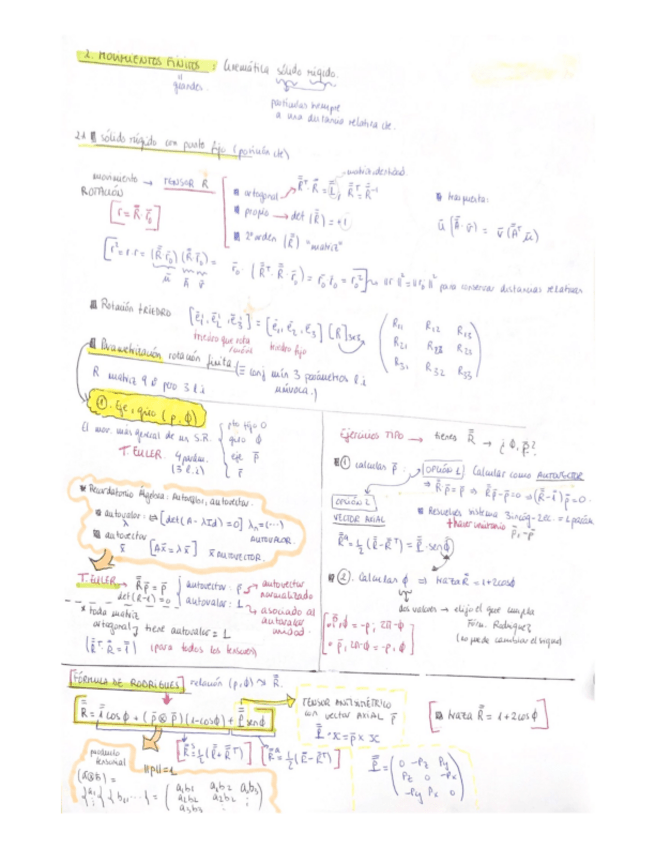 2. MOVIMIENTOS FINITOS : Cinemática sólido rígido.
grandes.
partículas siempre
a una distancia relativa cte.
2.1 sólido rígido con punto fijo (posición cte)
movimiento → TENSOR R
ROTACIÓN
[r̄ = R̿ · r̄₀]
ortogonal → R̿ᵀ · R̿ = 1̿, R̿ᵀ = R̿⁻¹
matriz identidad
propio → det (R̿) = +1
2º orden (R̿) "matriz"
traspuesta:
ū (A̿ · v̄) = v̄ (A̿ᵀ ū)
[r² = r · r = (R̿ r̄₀) (R̿ r̄₀) = r̄₀ · (R̿ᵀ · R̿ · r̄₀) = r̄₀ r̄₀ = r₀²] ||r||² = ||r₀||² para conservar distancias relativas
ū A̿ v̄
Rotación TRIEDRO [ē₁', ē₂', ē₃'] = [ē₁, ē₂, ē₃] [R]
triedro que rota
triedro fijo
(R₁₁ R₁₂ R₁₃
R₂₁ R₂₂ R₂₃
R₃₁ R₃₂ R₃₃)
Parametrización rotación finita (= conj mín 3 parámetros l.i
unívoca.)
R matriz 9 p pero 3 l.i
①. Eje, giro (p, ϕ)
El mov. más general de un S.R.
T. EULER.
(3 l.i)
pto fijo O
giro ϕ
eje p̄
Recordatorio Álgebra: Autovalor, autovector.
autovalor: ⇔ [det(A - λId) = 0] λₙ = (...)
λ
AUTOVALOR.
autovector
x̄ [Ax̄ = λx̄] x̄ AUTOVECTOR.
T. EULER → R̿p̄ = p̄
det(R-1) = 0
autovector: p̄ → autovector
normalizado
autovalor: 1 → asociado al
autovalor
unidad.
* toda matriz
ortogonal tiene autovalor = 1
(R̿ᵀ · R̿ = 1̿) (para todos los tensores)
Ejercicios TIPO → tienes R̿ → ¿ϕ, p̄?
① calcular p̄ : OPCIÓN 1 Calcular como AUTOVECTOR
⇒ R̿p̄ = p̄ ⇒ R̿p̄ - p̄ = 0 ⇒ (R̿ - 1̿) p̄ = 0.
OPCIÓN 2
VECTOR AXIAL
Resuelves sistema 3 incóg - 2 ec.
+ hacer unitario p̄, -p̄
R̿ᵃ = ½ (R̿ - R̿ᵀ) = P̿ · senϕ
②. Calcular ϕ ⇒ traza R̿ = 1 + 2cosϕ
dos valores → elijo el que cumpla
Fórm. Rodrigues
(no puede cambiar el signo)
p̄, ϕ = -p̄, 2π - ϕ
p̄, 2π - ϕ = -p̄, ϕ
FÓRMULA DE RODRIGUES relación (p, ϕ) R̿.
R̿ = 1̿ cosϕ + (p̄ ⊗ p̄) (1 - cosϕ) + P̿ senϕ
[R̿ˢ = ½ (R̿ + R̿ᵀ)] [R̿ᵃ = ½ (R̿ - R̿ᵀ)]
||p|| = 1
TENSOR ANTISIMÉTRICO
con vector AXIAL p̄
P̿ · x = p̄ × x
[traza R̿ = 1 + 2cosϕ]
producto
tensorial
(a⊗b) =
{a₁ {b₁, ...} = (a₁b₁ a₁b₂ a₁b₃
a₂b₁ a₂b₂
a₃b₁
P̿ = (0 -Pz Py
Pz 0 -Px
-Py Px 0)